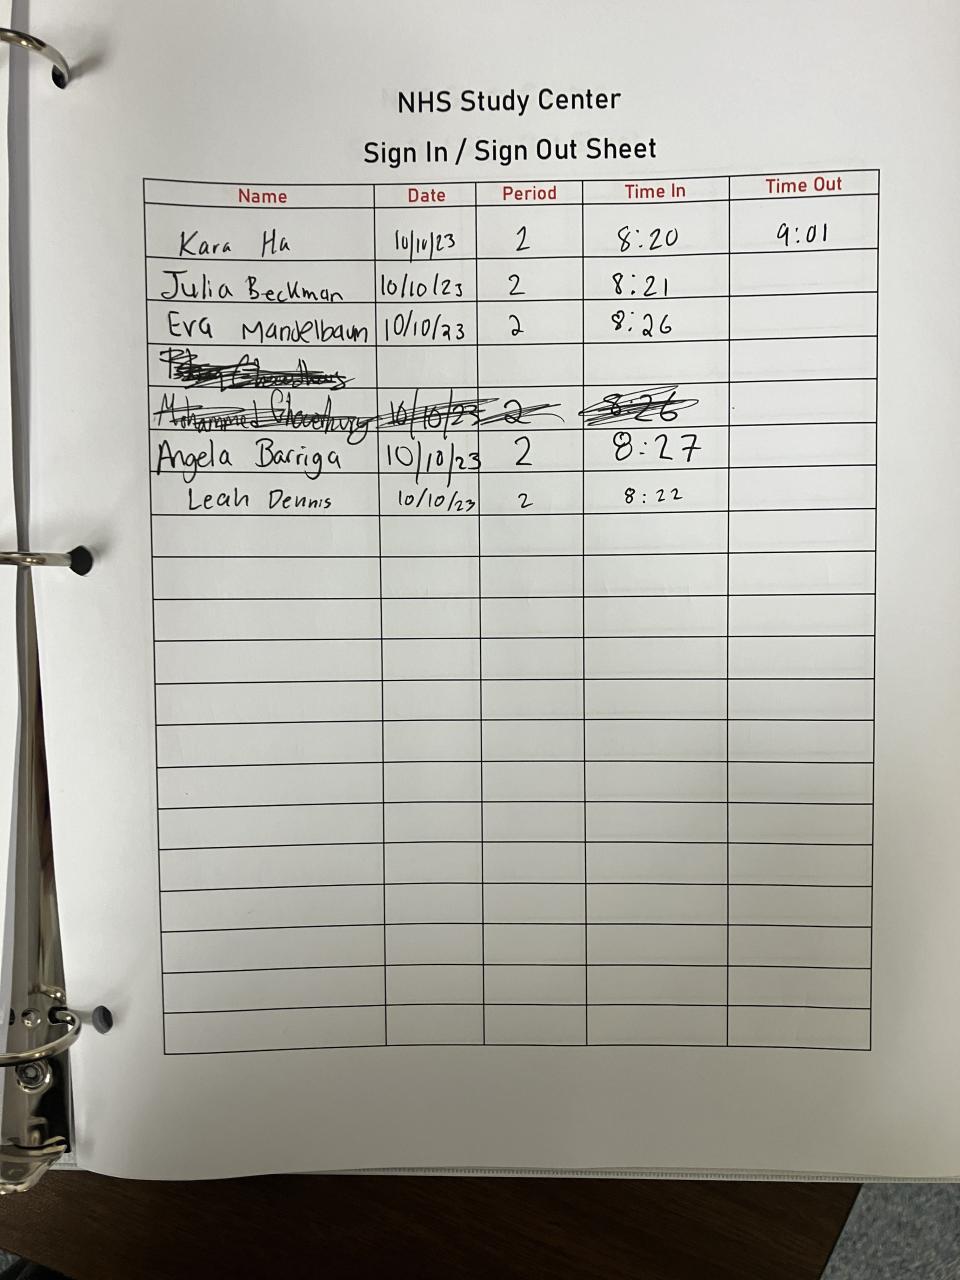 NHS Study Center
Sign In / Sign Out Sheet
Name Date Period Time In Time Out
Kara Ha 10/10/23 2 8:20 9:01
Julia Beckman 10/10/23 2 8:21
Eva Mandelbaum 10/10/23 2 8:26
Chowdhury
Mohammed Chowdhury 10/10/23 2 8:26
Angela Barriga 10/10/23 2 8:27
Leah Dennis 10/10/23 2 8:22